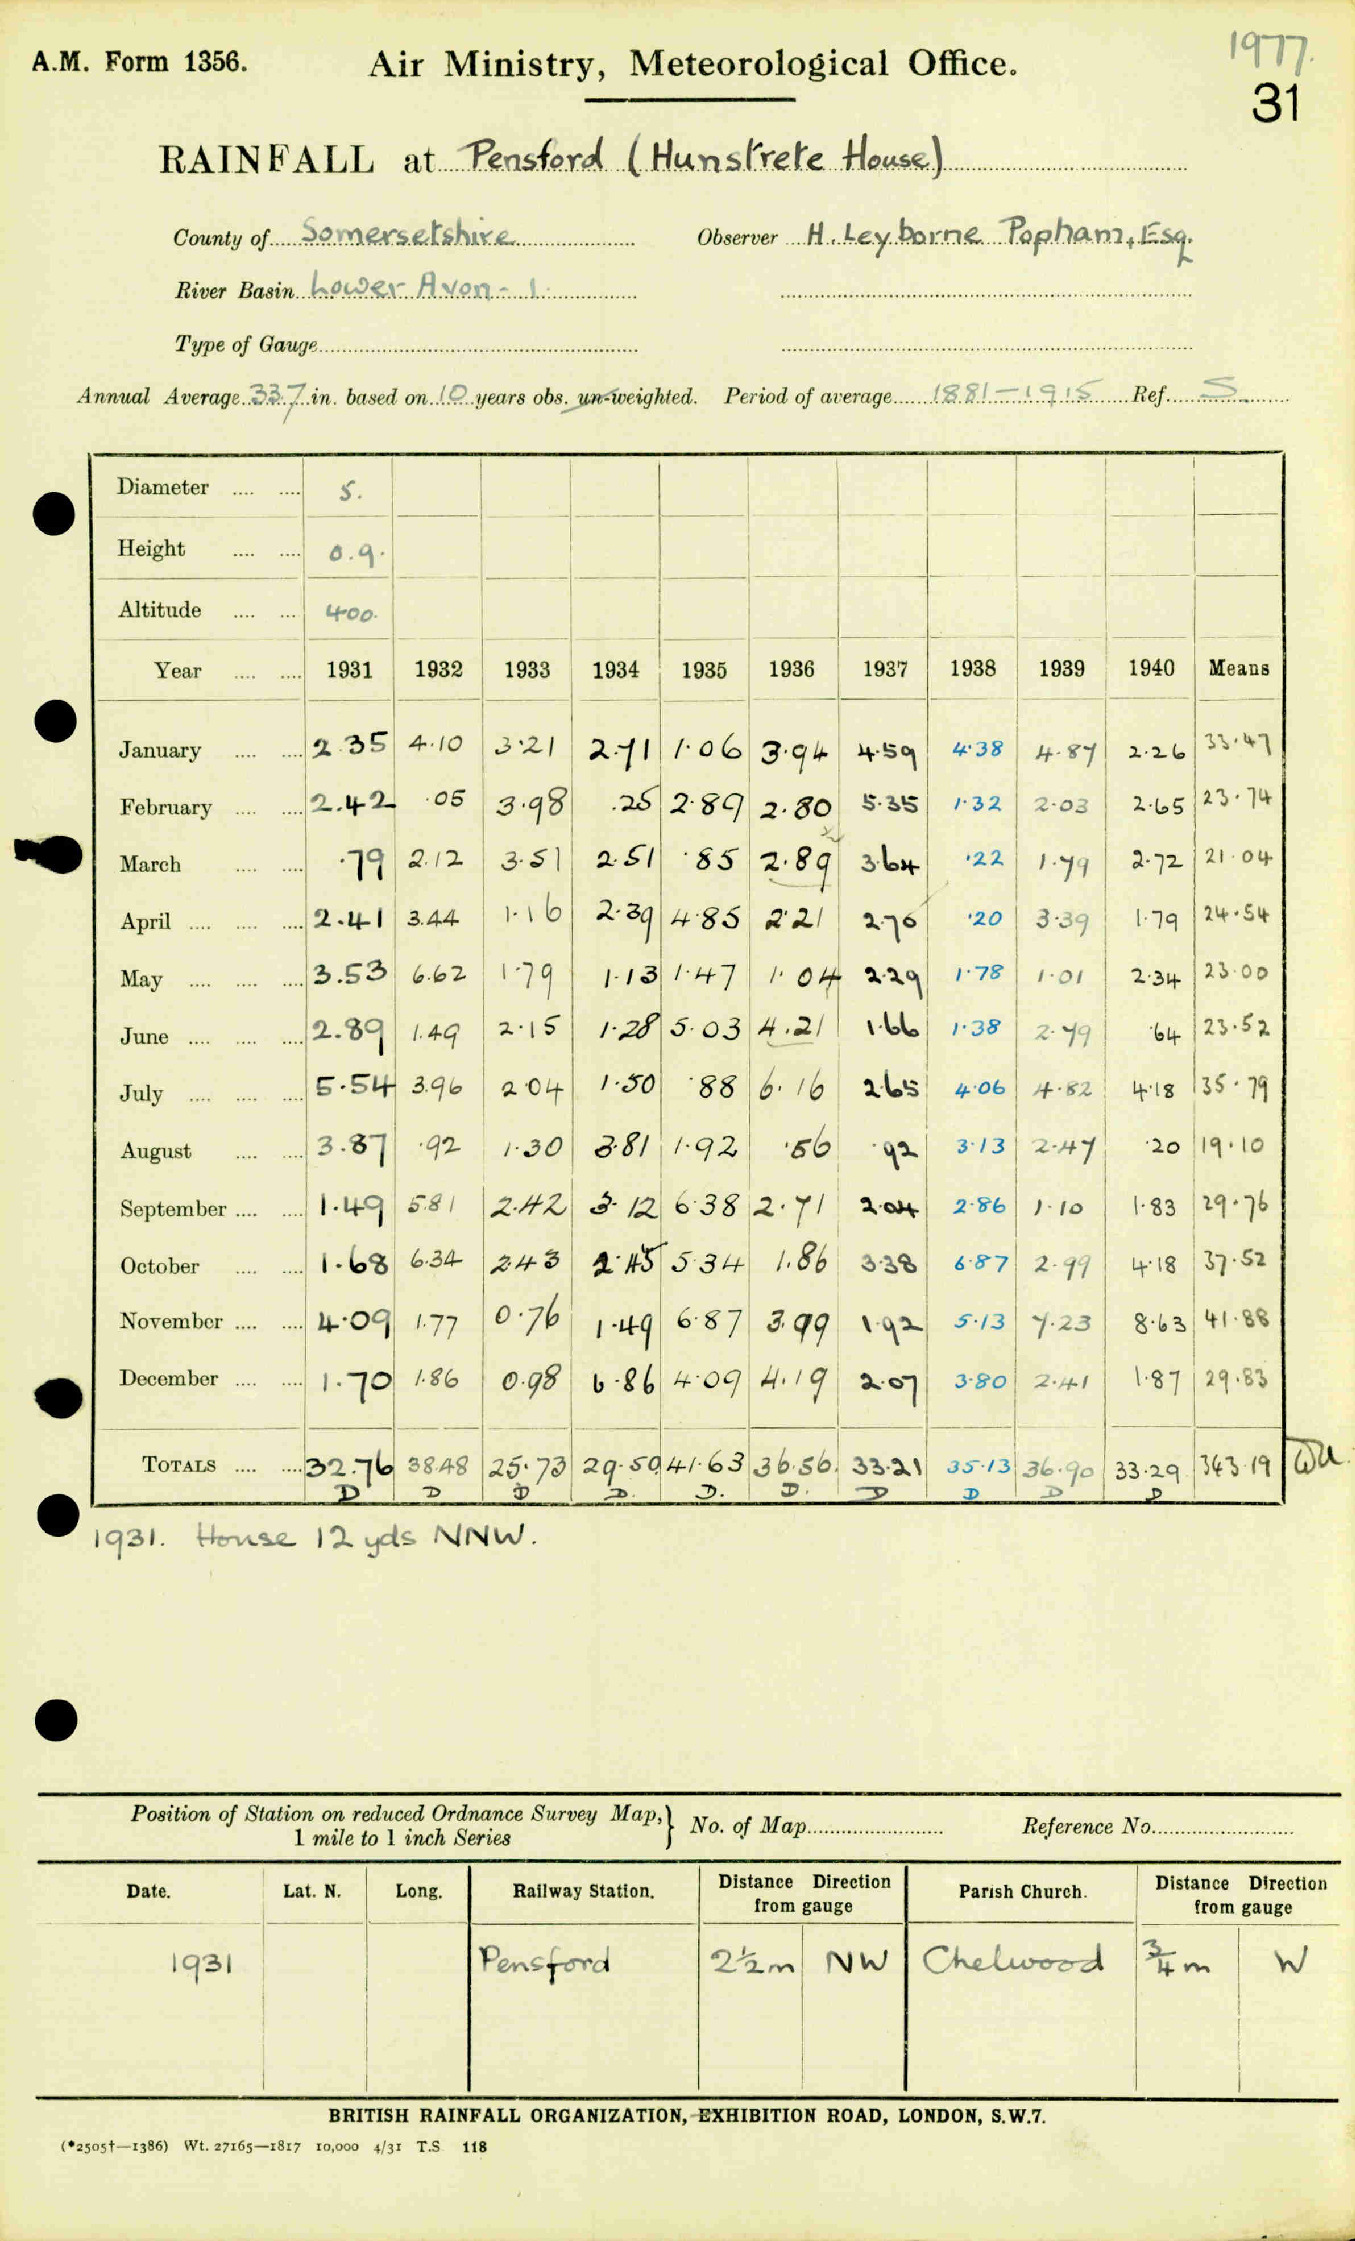 1977.
A.M. Form 1356. Air Ministry, Meteorological Office.
31
RAINFALL at Pensford (Hunstrete House)
County of Somersetshire Observer H. Leyborne Popham, Esq.
River Basin Lower Avon - 1.
Type of Gauge
Annual Average 33.7 in. based on 10 years obs. un-weighted. Period of average 1881-1915 Ref. S
Diameter 5.
Height 0.9.
Altitude 400.
Year 1931 1932 1933 1934 1935 1936 1937 1938 1939 1940 Means
January 2.35 4.10 3.21 2.71 1.06 3.94 4.59 4.38 4.87 2.26 33.47
February 2.42 .05 3.98 .25 2.89 2.80 5.35 1.32 2.03 2.65 23.74
March .79 2.12 3.51 2.51 .85 2.89 3.64 .22 1.79 2.72 21.04
April 2.41 3.44 1.16 2.39 4.85 2.21 2.70 .20 3.39 1.79 24.54
May 3.53 6.62 1.79 1.13 1.47 1.04 2.29 1.78 1.01 2.34 23.00
June 2.89 1.49 2.15 1.28 5.03 4.21 1.66 1.38 2.79 .64 23.52
July 5.54 3.96 2.04 1.50 .88 6.16 2.65 4.06 4.82 4.18 35.79
August 3.87 .92 1.30 3.81 1.92 .56 .92 3.13 2.47 .20 19.10
September 1.49 5.81 2.42 3.12 6.38 2.71 2.04 2.86 1.10 1.83 29.76
October 1.68 6.34 2.43 2.45 5.34 1.86 3.38 6.87 2.99 4.18 37.52
November 4.09 1.77 0.76 1.49 6.87 3.99 1.92 5.13 7.23 8.63 41.88
December 1.70 1.86 0.98 6.86 4.09 4.19 2.07 3.80 2.41 1.87 29.83
TOTALS 32.76 38.48 25.73 29.50 41.63 36.56 33.21 35.13 36.90 33.29 343.19
D D D D. D. D. D D D D
1931. House 12 yds NNW.
Position of Station on reduced Ordnance Survey Map, 1 mile to 1 inch Series } No. of Map Reference No.
Date. Lat. N. Long. Railway Station. Distance Direction from gauge Parish Church. Distance Direction from gauge
1931 Pensford 2½m NW Chelwood ¾m W
BRITISH RAINFALL ORGANIZATION, EXHIBITION ROAD, LONDON, S.W.7.
(*2505†—1386) Wt. 27165—1817 10,000 4/31 T.S 118